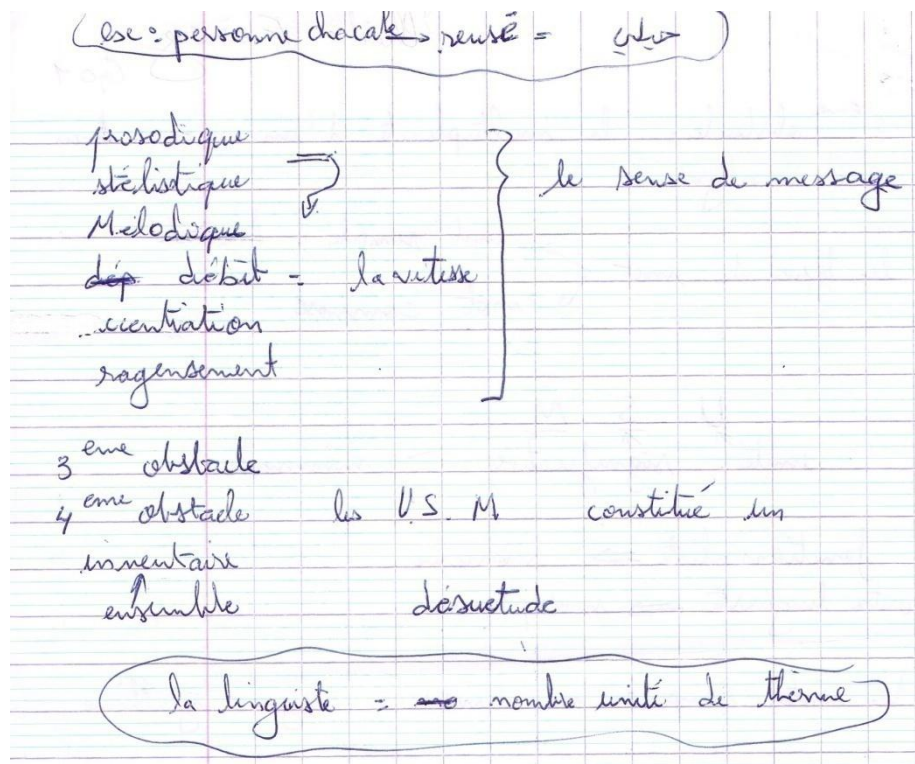 (ex: personne chacale → reusé = حيلي)
prosodique
stélistique
Mélodique
débit = la vitesse
le sense de message
cientiation
ragensement
3 eme obstacle
4 eme obstacle les U.S.M constitué un
inventaire
ensemble désuetude
la linguiste = nombre unité de thérme